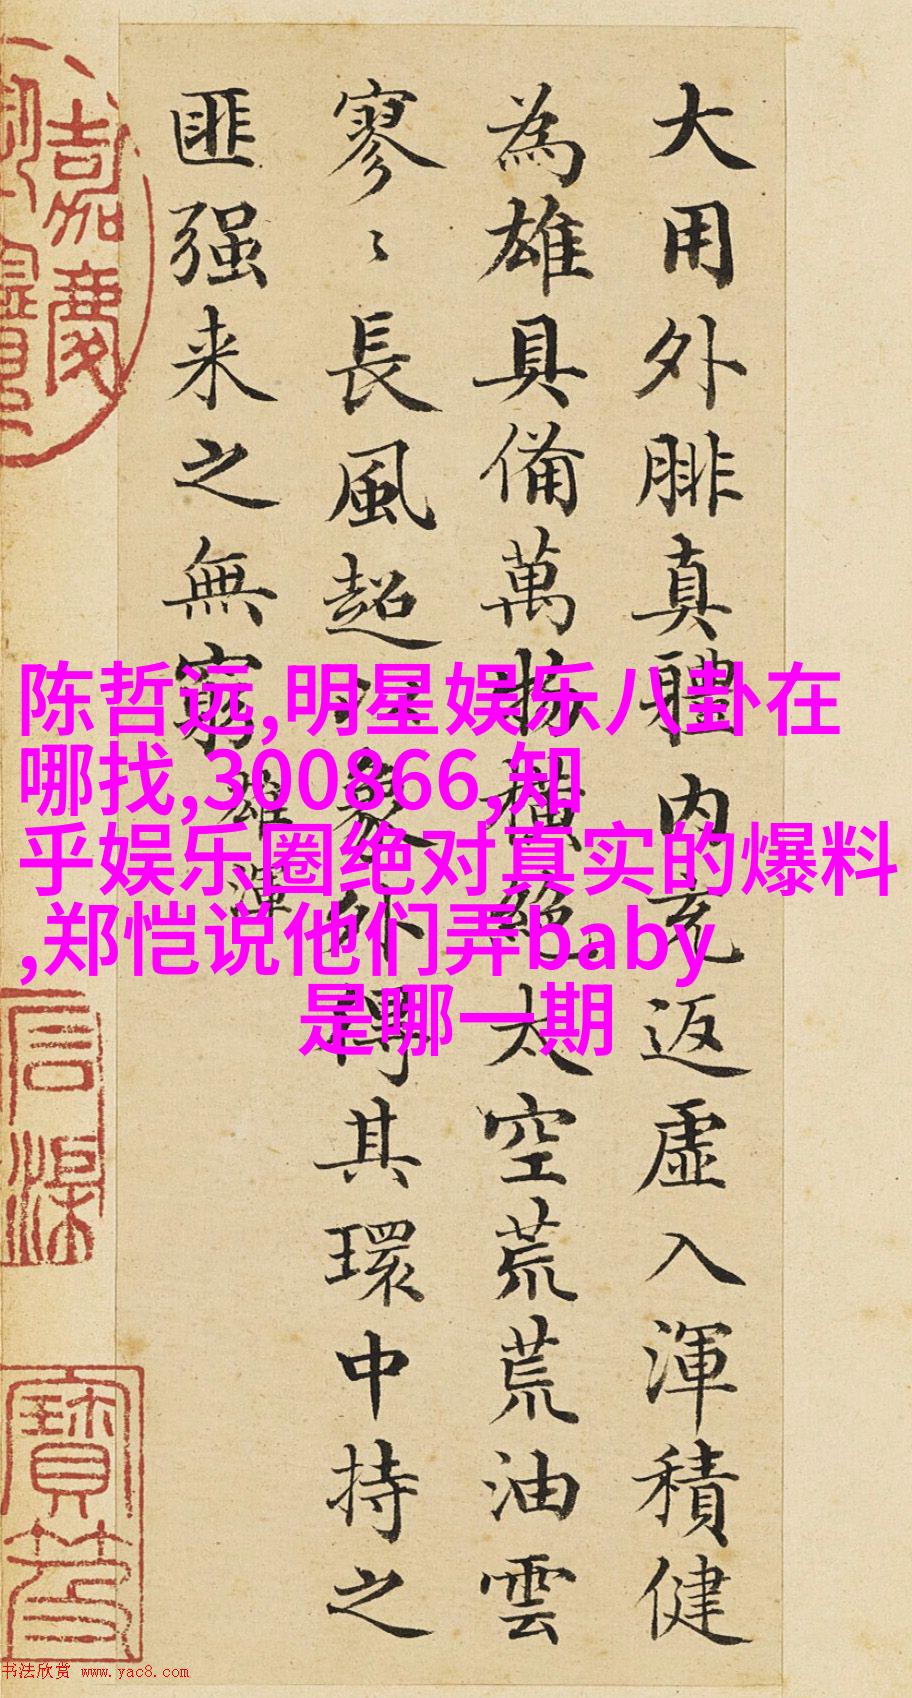 大用外腓真體内充返虚入渾積健
為雄具備萬物橫絕太空荒荒油雲
寥〻長風超以象外得其環中持之
匪强来之無窮
雄渾
陈哲远,明星娱乐八卦在
哪找,300866,知
乎娱乐圈绝对真实的爆料
,郑恺说他们弄baby
是哪一期
嘉慶
寶笈
书法欣赏 www.yac8.com